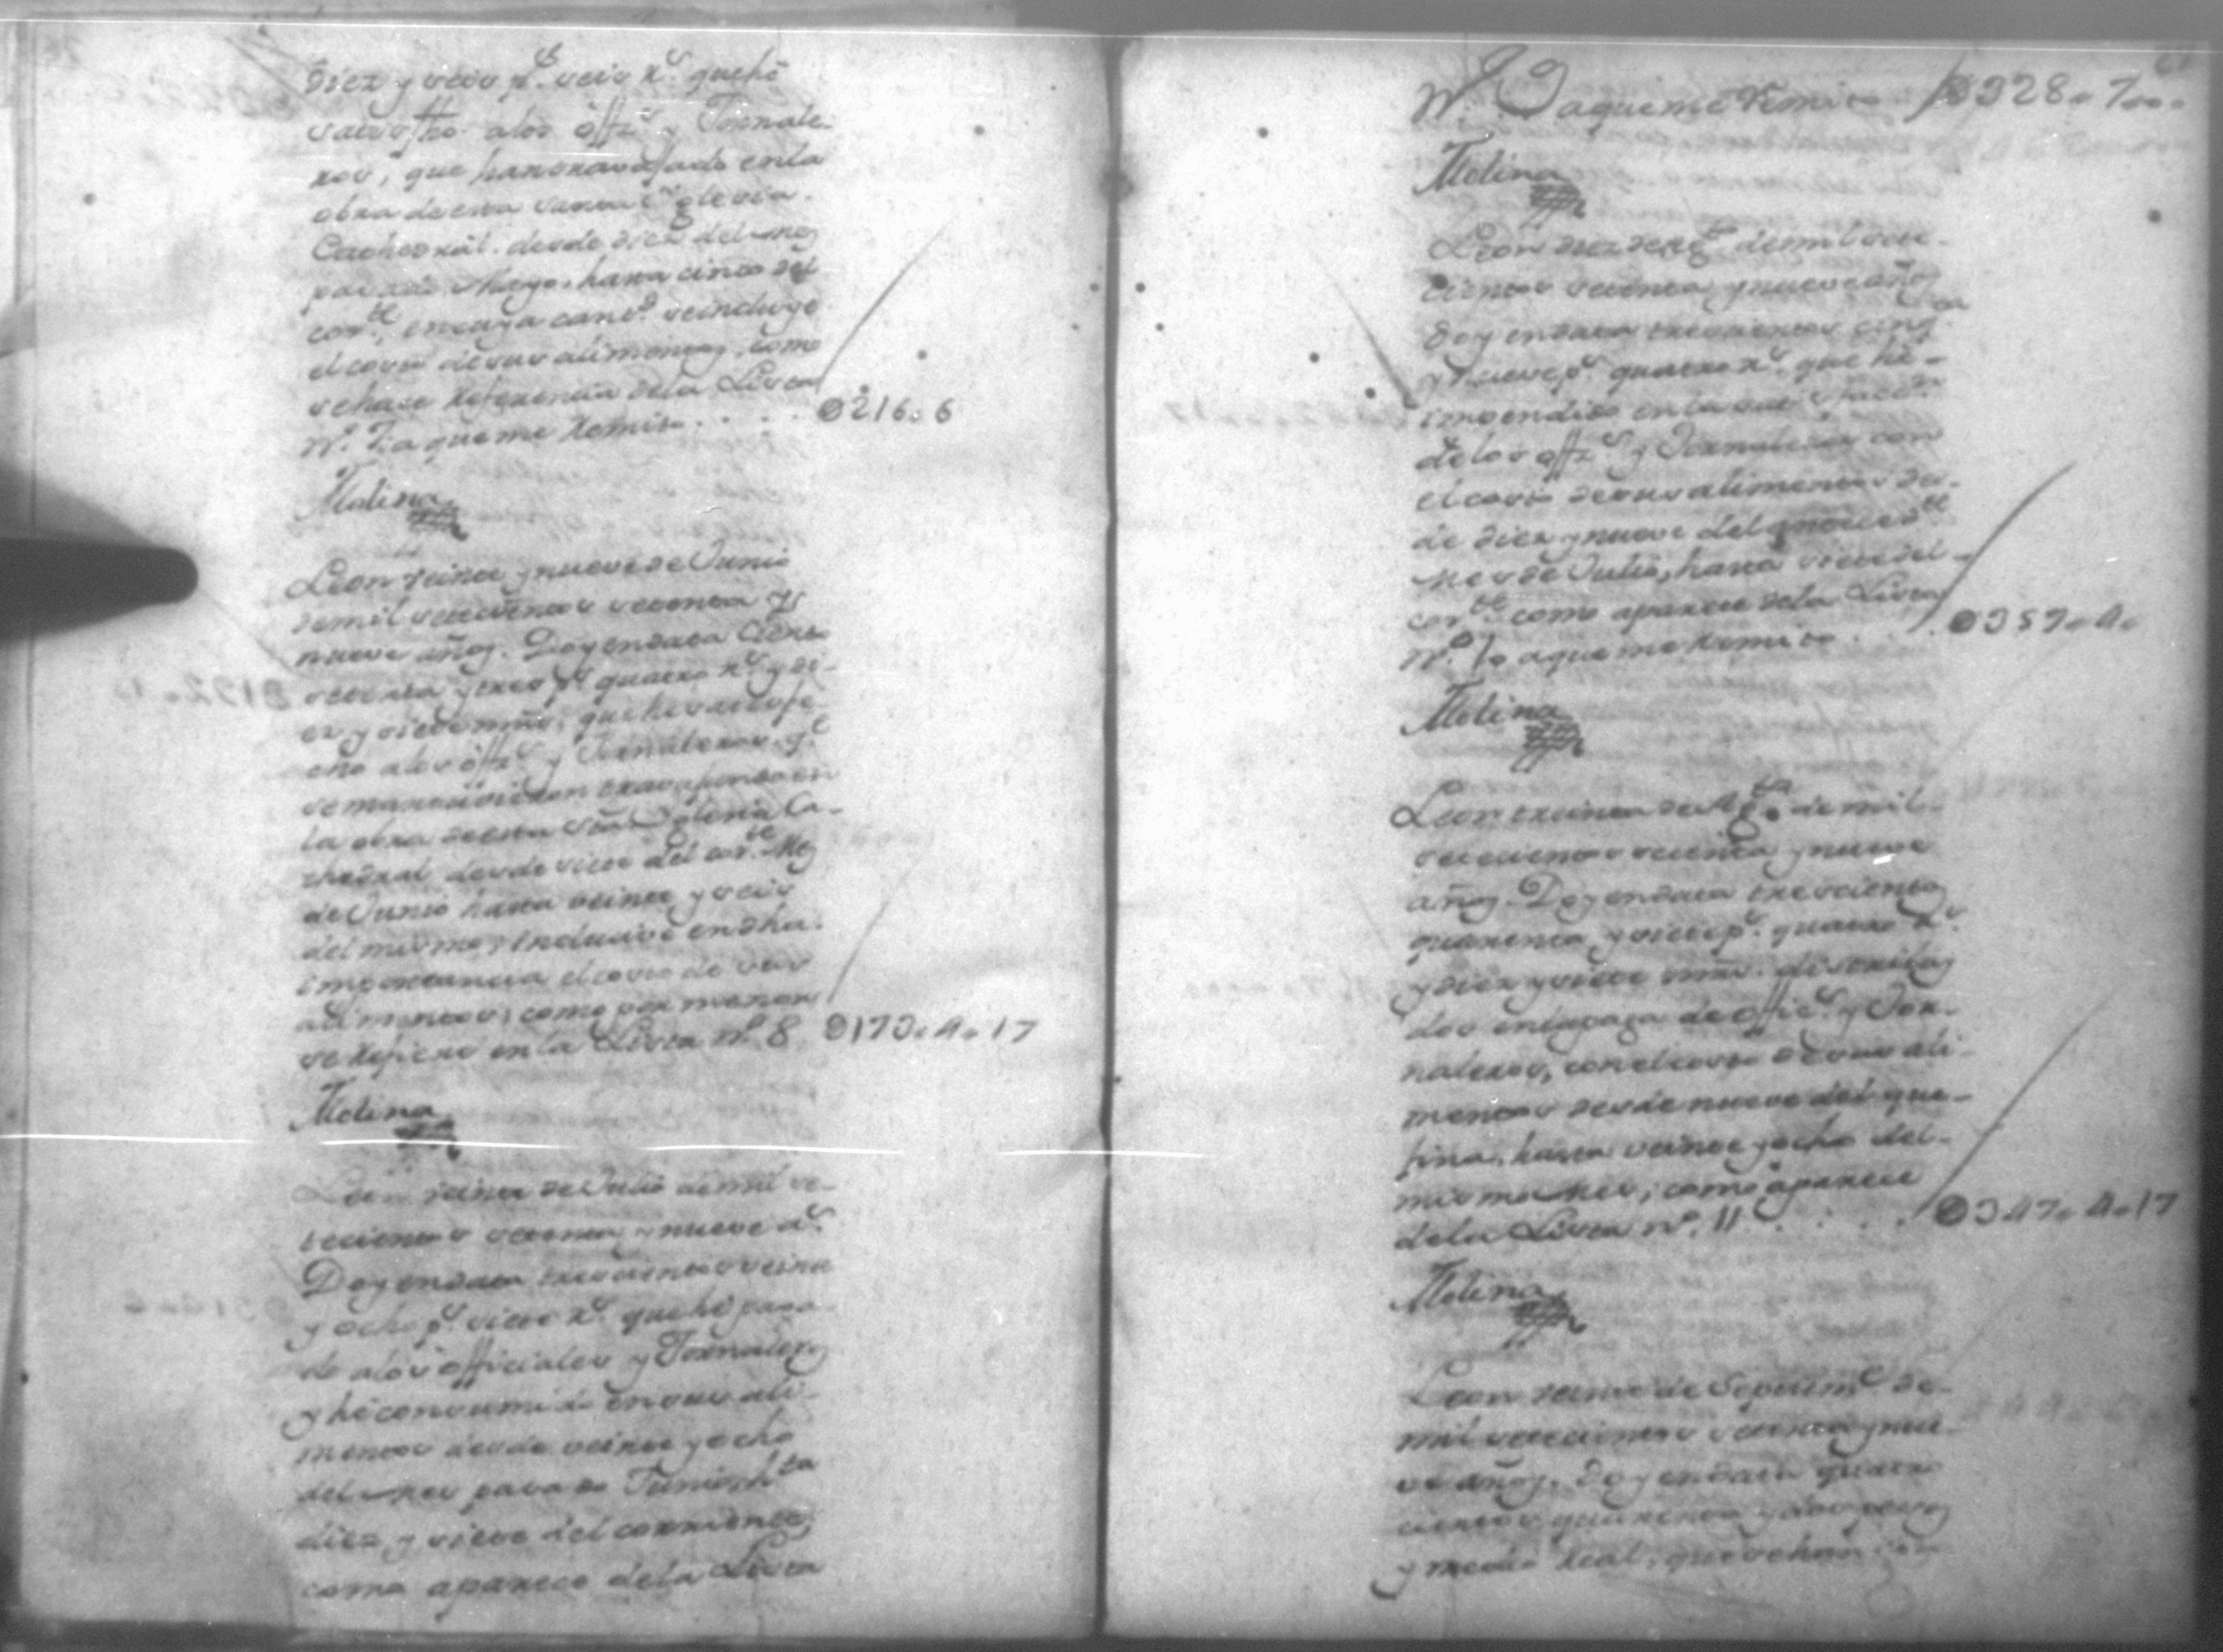 diez y seis p.s seis r.s que hé
satisfho. a los offiz.s y Jornale-
ros, que han travajado en la
obra de esta Santa Yglesia
Cathedral. desde diez del mes
pasado Mayo, hasta cinco del
cor.te, en cuya cant.d se incluye
el costo de sus alimentos, como
se hase referencia de la Lista
N.o 7. a que me remito. . . . . 0216. 6
Molina
Leon veinte y nueve de Junio
de mil setecientos setenta y
nueve años. Doy en data Ciento
setenta y tres p.s quatro r.s y di-
ez y siete mrs. que he satisfe-
cho a los offiz.s y Jornaleros q.e
se mantuvieron travajando en
la obra de esta Sta Yglesia Ca-
thedral desde siete del cor.te Mes
de Junio hasta veinte y seis
del mismo, inclusive en dha.
importancia el costo de sus
alimentos, como por menor
se refiere en la Lista n.o 8. 0173. 4. 17
Molina
Leon veinte de Julio de mil se-
tecientos setenta y nueve a.s
Doy en data trescientos veinte
y ocho p.s siete r.s que hé paga-
do a los officiales y Jornaleros
y hé consumido en sus ali-
mentos desde veinte y ocho
del mes pasado Junio, h.ta
diez y siete del corriente,
como aparece de la Lista
N.o 9 a que me remito 0328. 7...
Molina
Leon diez de Ag.to de mil sete-
cientos setenta y nueve años
Doy en data trescientos cinq.ta
y nueve p.s quatro r.s que he
impendido en la satisfacc.n
de los offiz.s y Jornaleros con
el costo de sus alimentos des-
de diez y nueve del anteced.te
mes de Julio, hasta siete del
cor.te como aparece de la Lista
N.o 10 a que me remito . . . 0359. 4.
Molina
Leon treinta de Ag.to de mil
setecientos setenta y nueve
años. Doy en data trescientos
quarenta y siete p.s quatro r.s
y diez y siete mrs. distribuy
dos en la paga de offic.s y Jor-
naleros, con el costo de sus ali-
mentos desde nueve del que
fina, hasta veinte y ocho del
mismo mes, como aparece
de la Lista n.o 11 . . . . 0347. 4. 17
Molina
Leon veinte de Septiem.e de
mil setecientos setenta y nue-
ve años. Doy en data quatro
cientos quarenta y dos pesos
y medio real, que se han